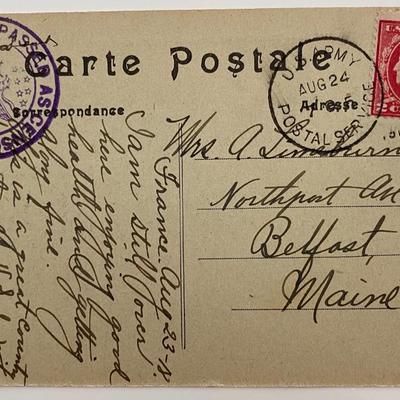 Carte Postale
Correspondance
Adresse
PASSED AS CENSORED
U.S. ARMY
AUG 24
POSTAL SERVICE
Mrs. A.
Northport Av
Belfast,
Maine
France. Aug 23-18
I am still over
here enjoying good
health and getting
along fine.
is a great country